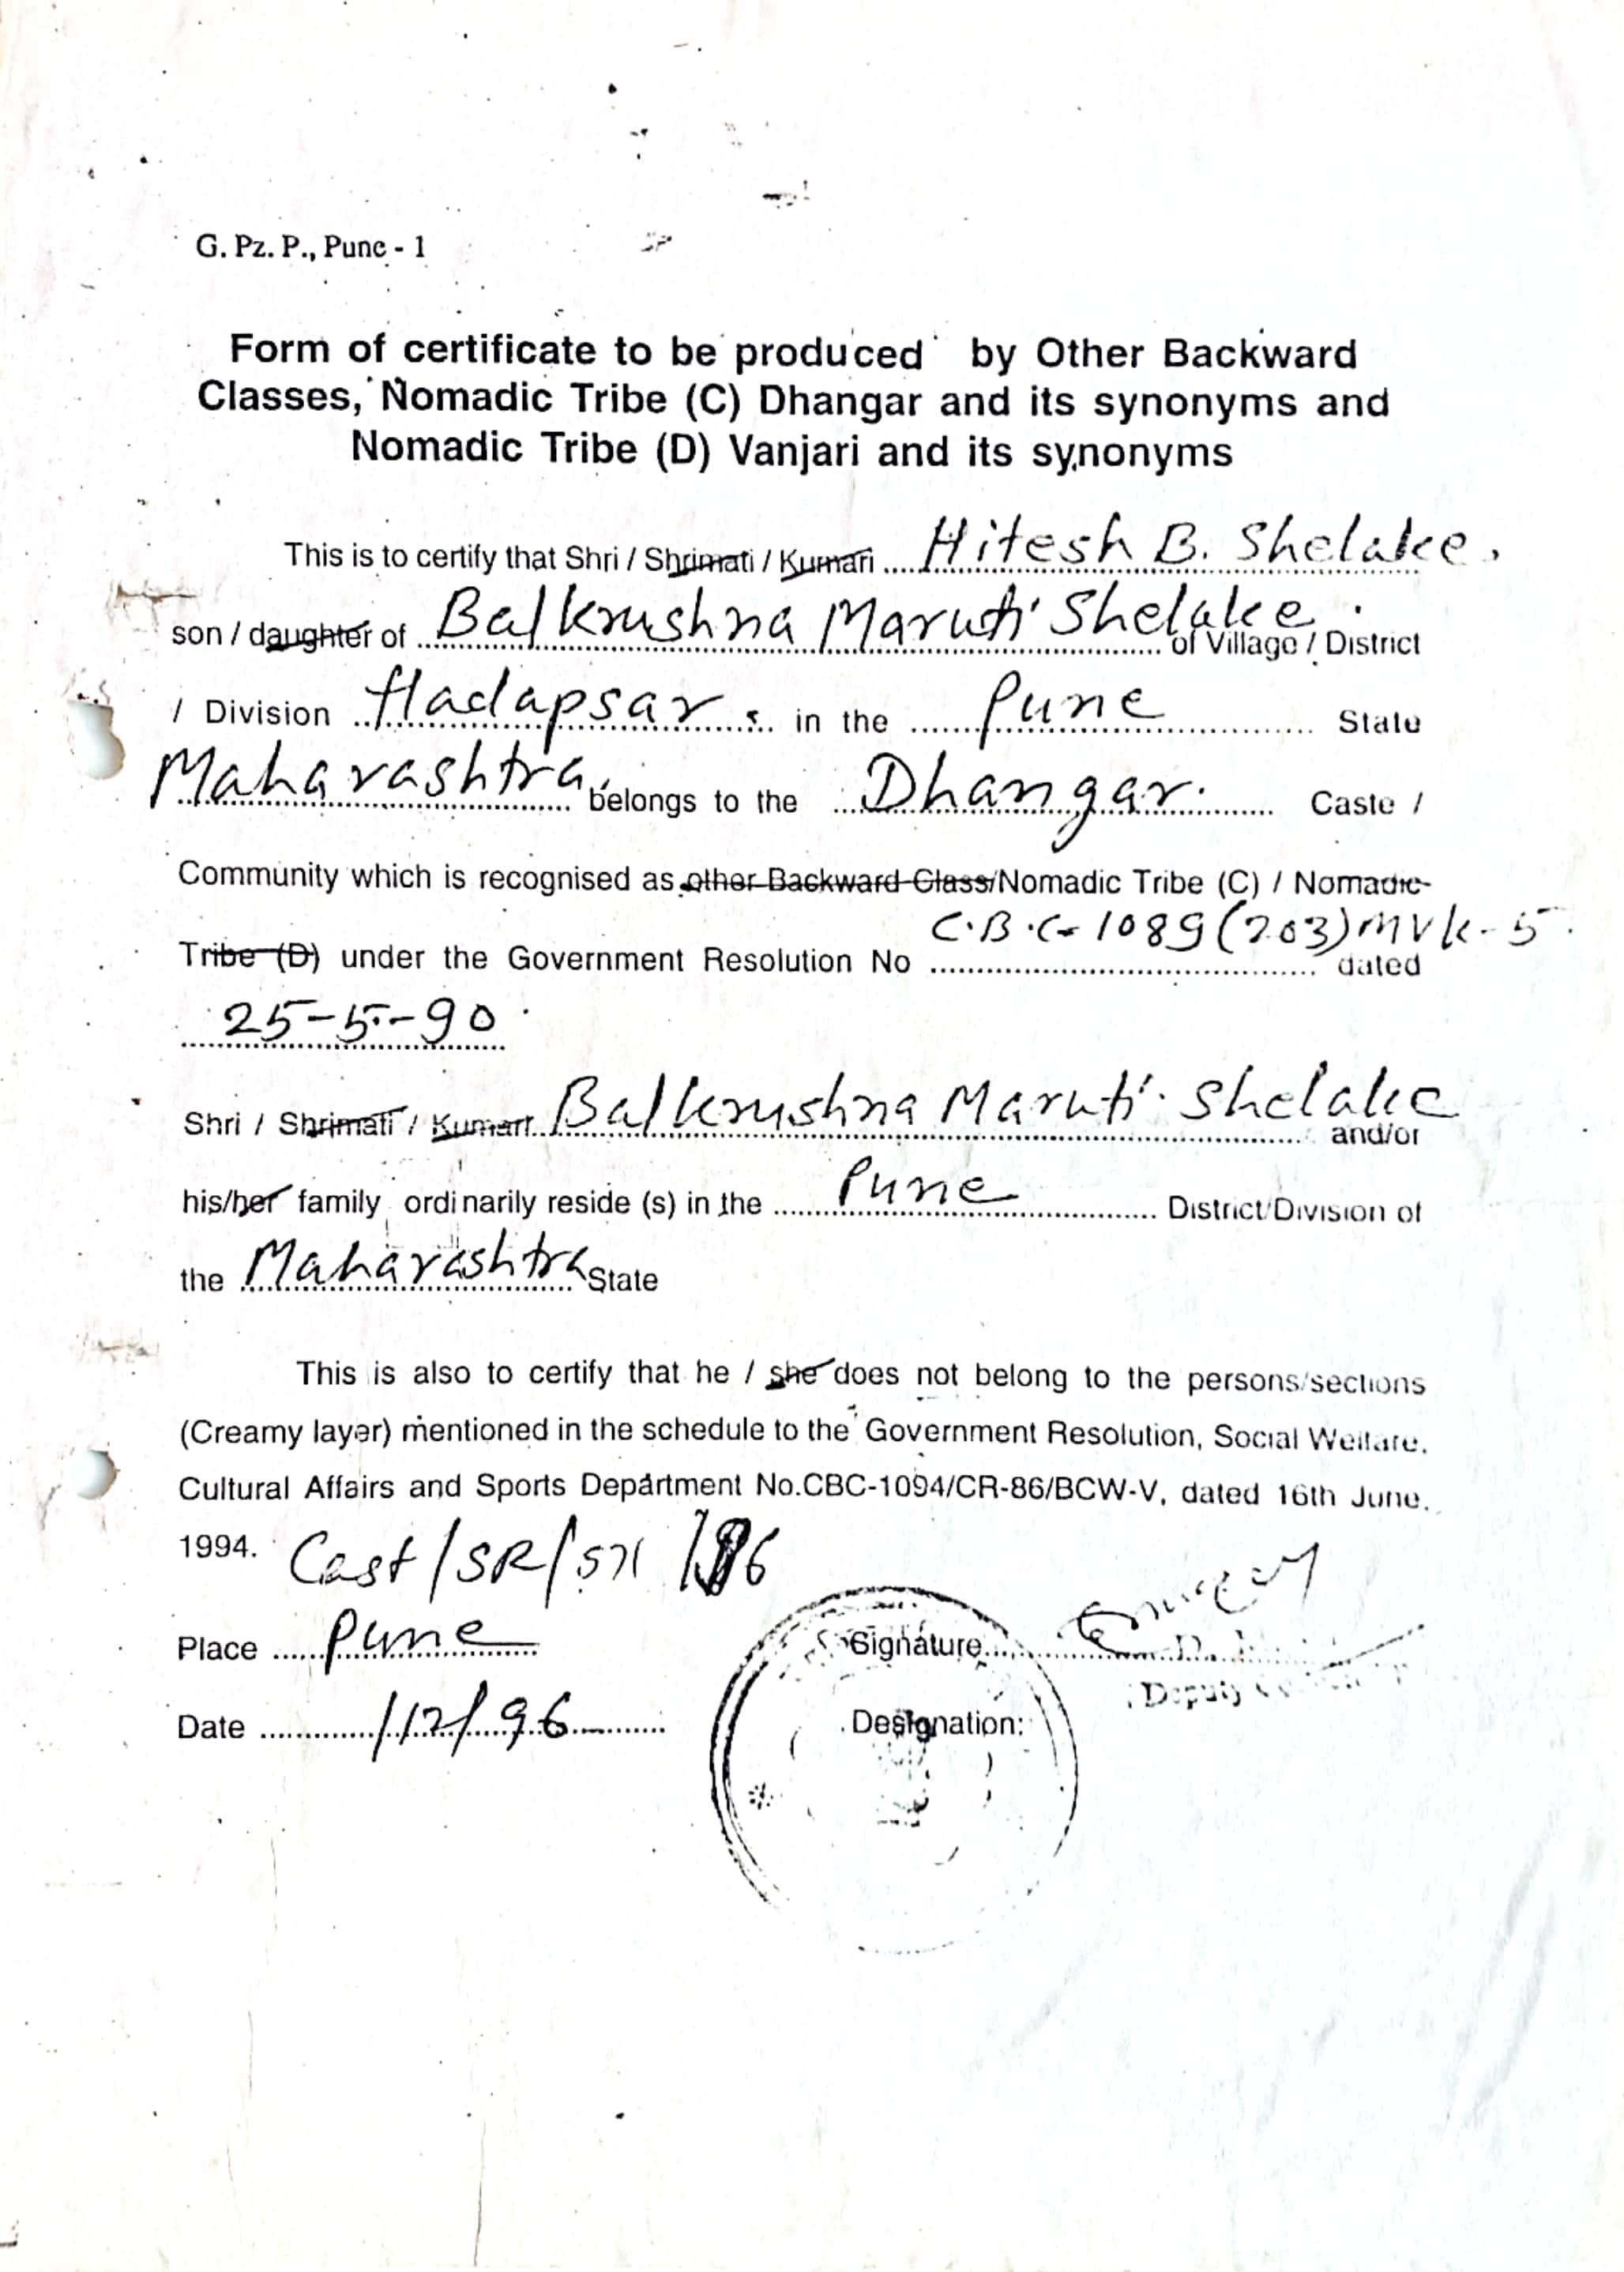 G. Pz. P., Pune - 1
Form of certificate to be produced by Other Backward
Classes, Nomadic Tribe (C) Dhangar and its synonyms and
Nomadic Tribe (D) Vanjari and its synonyms
This is to certify that Shri / Shrimati / Kumari Hitesh B. Shelake.
son / daughter of Balkrushna Maruti Shelake of Village / District
/ Division Hadapsar. in the Pune State
Maharashtra belongs to the Dhangar. Caste /
Community which is recognised as other Backward Class/Nomadic Tribe (C) / Nomadic
C.B.C- 1089 (203) MVK-5
Tribe (D) under the Government Resolution No ........ dated
25-5-90
Shri / Shrimati / Kumari Balkrushna Maruti Shelake and/or
his/her family ordinarily reside (s) in the Pune District/Division of
the Maharashtra State
This is also to certify that he / she does not belong to the persons/sections
(Creamy layer) mentioned in the schedule to the Government Resolution, Social Welfare,
Cultural Affairs and Sports Department No.CBC-1094/CR-86/BCW-V, dated 16th June.
1994. Cast/SR/571
Place Pune Signature
Deputy
Date /12/96 Designation: